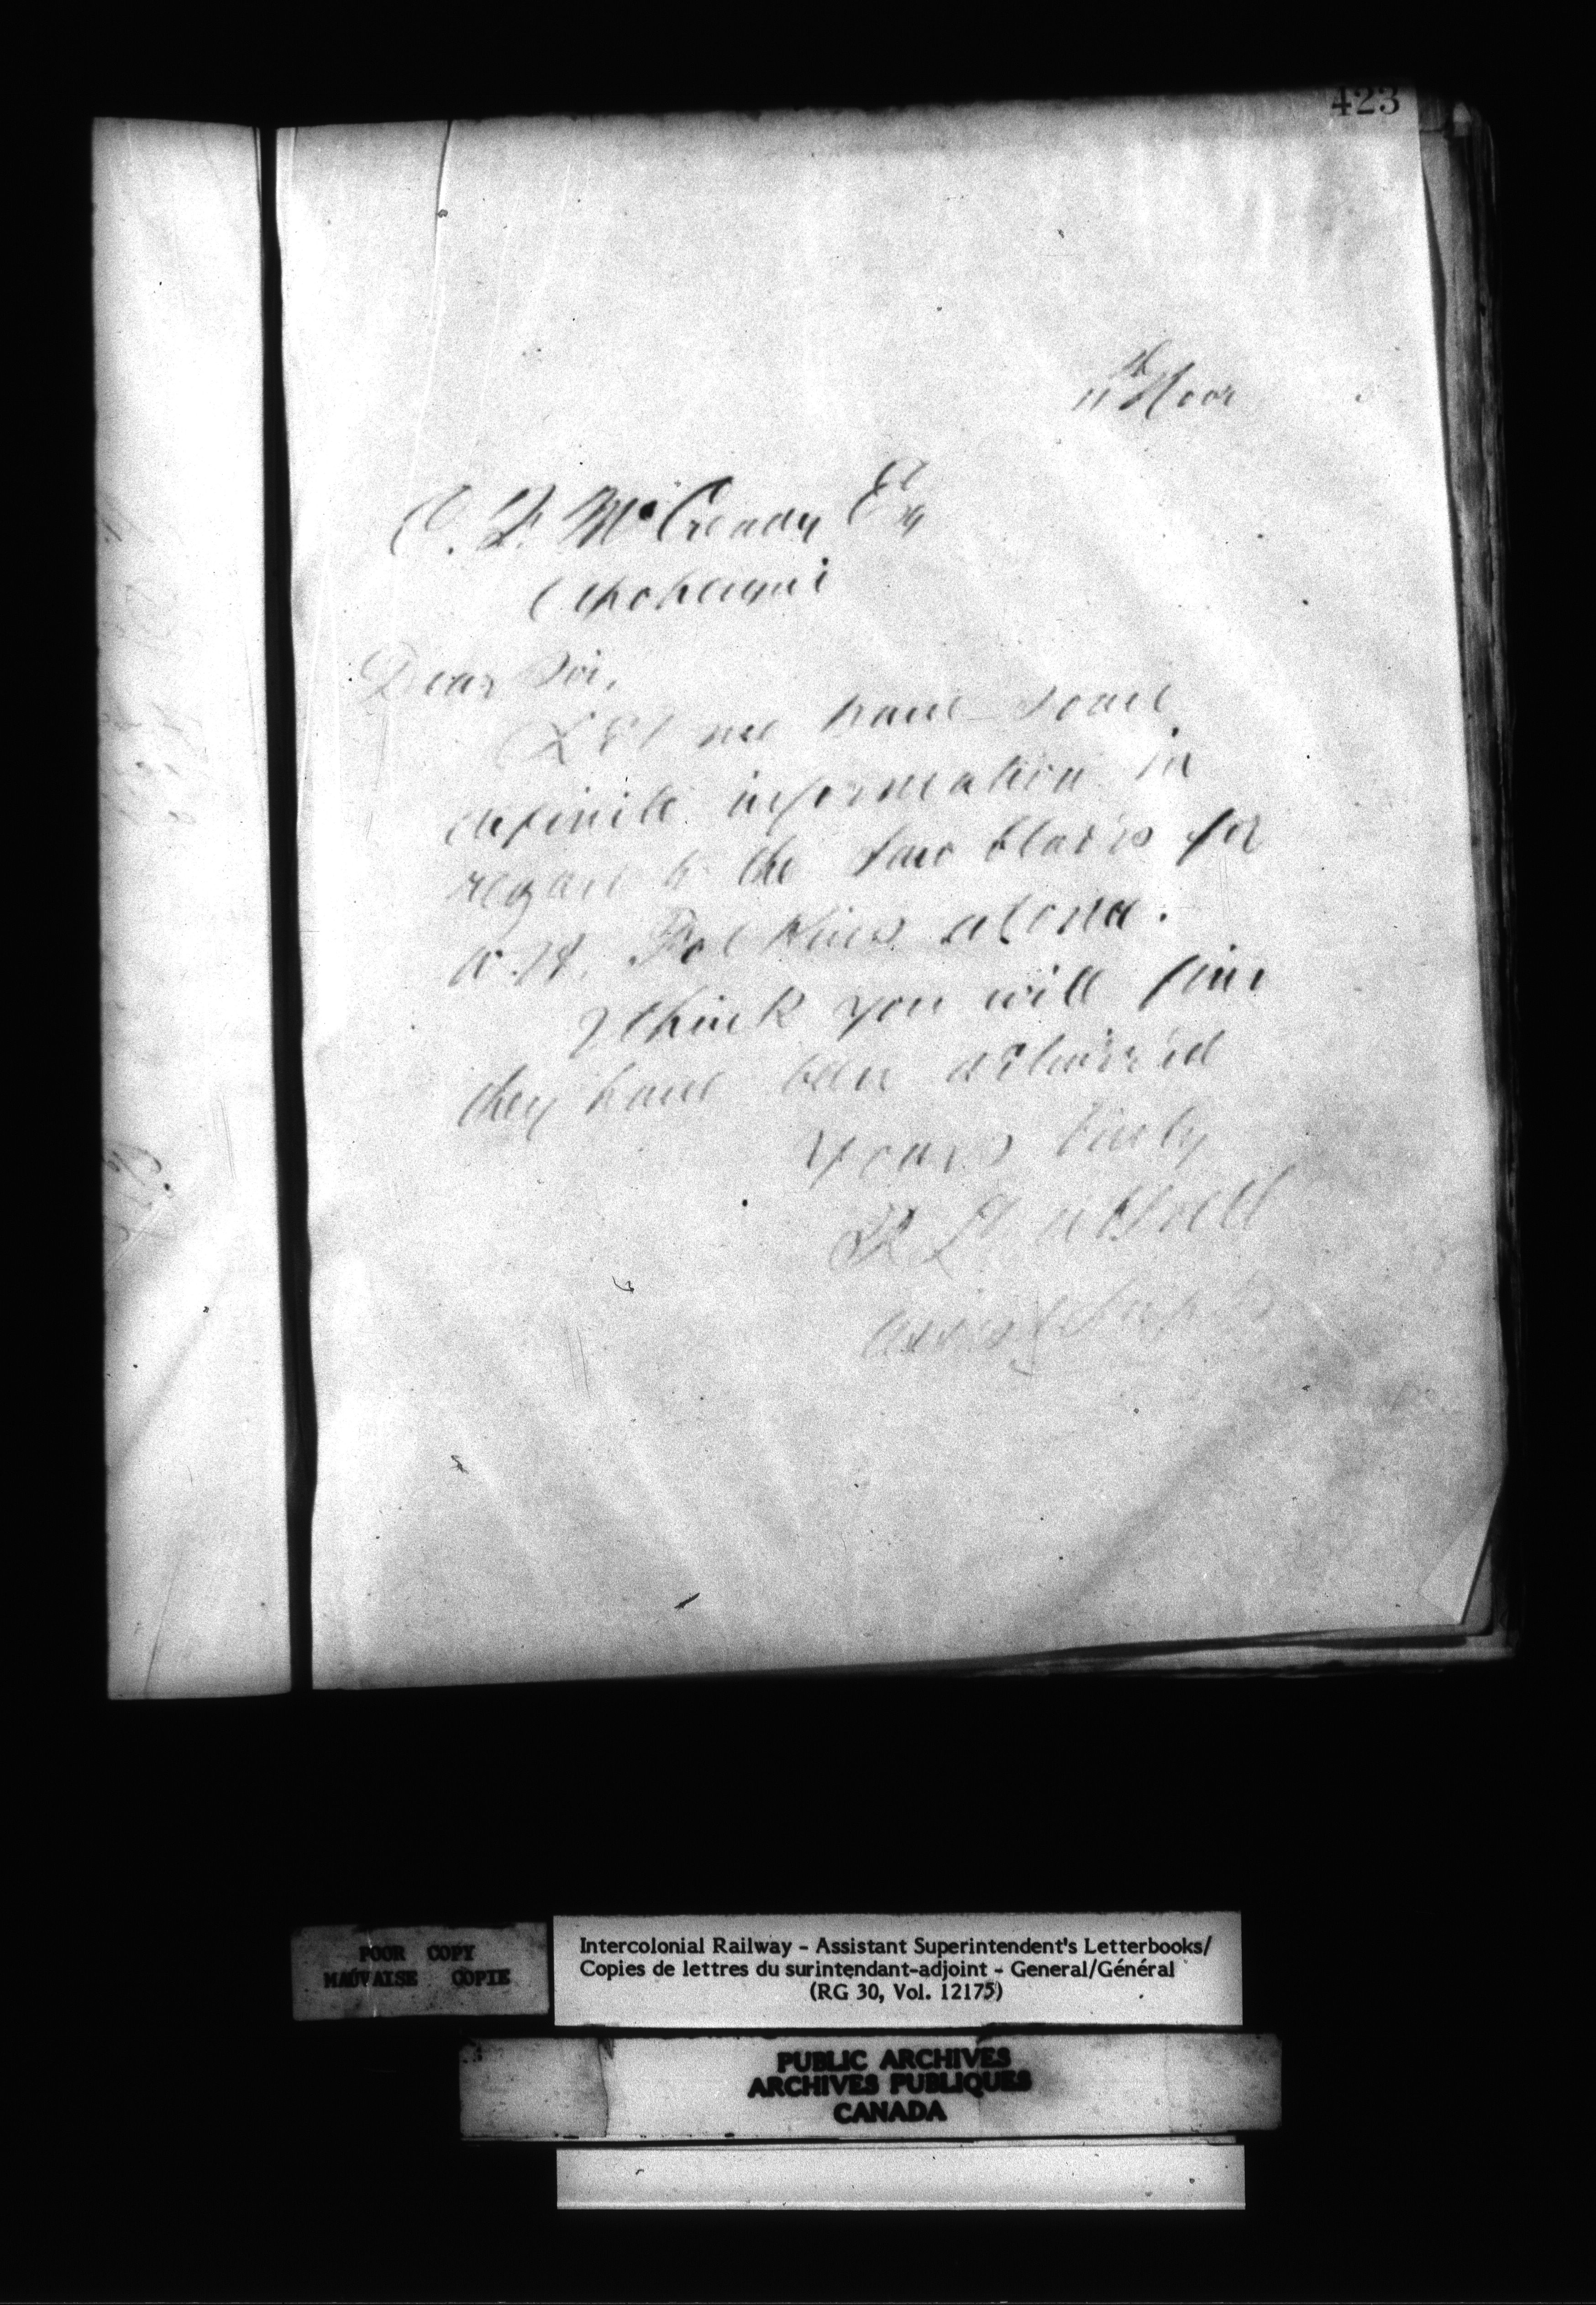 423
11th Novr
C. F. McCready Esq
Apohaqui
Dear Sir,
Let me have some
definite information in
regard to the two for
W. H. alone.
I think you will find
they have been
Yours truly
R Luttrell
Assist Supt
POOR COPY
MAUVAISE COPIE
Intercolonial Railway - Assistant Superintendent's Letterbooks/
Copies de lettres du surintendant-adjoint - General/Général
(RG 30, Vol. 12175)
PUBLIC ARCHIVES
ARCHIVES PUBLIQUES
CANADA